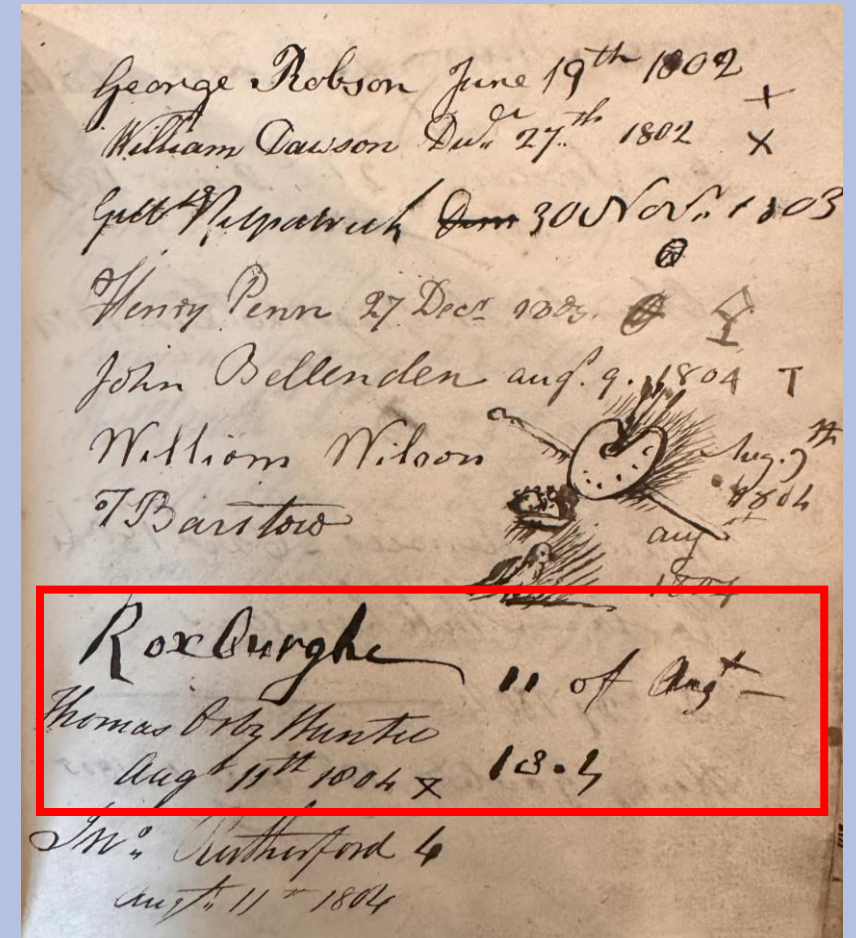 George Robson June 19th 1802 +
William Dawson Do.. 27th 1802 X
Kilpatrick 30 Nov. 1803
Henry Penn 27 Decr 1803.
John Bellenden augt. 9. 1804 T
William Wilson Aug. 9th 1804
T Barstow augst 1804
Roxburghe 11 of Augt 18.4
Thomas Orby Hunter
Augt 11th 1804 X
Jno.. Rutherford 4
Augt.. 11th 1804